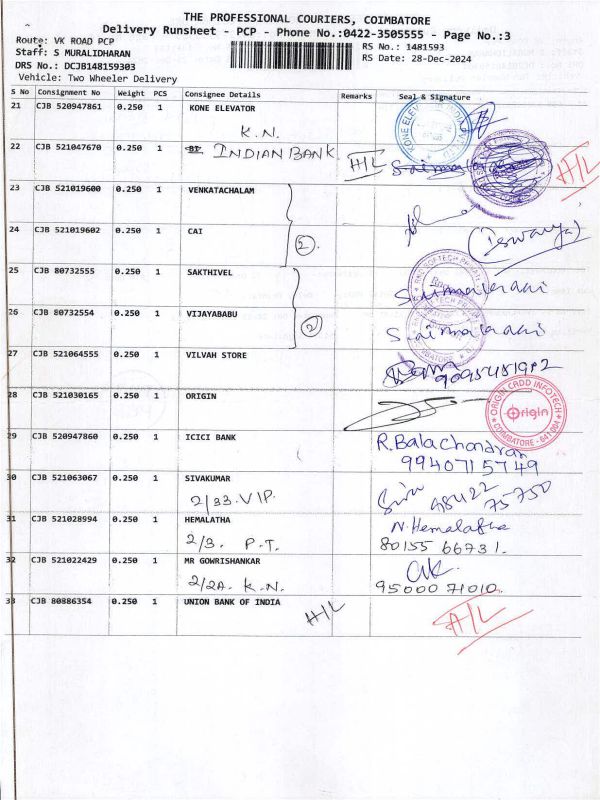 THE PROFESSIONAL COURIERS, COIMBATORE
Delivery Runsheet - PCP - Phone No.:0422-3505555 - Page No.:3
Route: VK ROAD PCP
RS No.: 1481593
Staff: S MURALIDHARAN
RS Date: 28-Dec-2024
DRS No.: DCJB148159303
Vehicle: Two Wheeler Delivery
S No Consignment No Weight PCS Consignee Details Remarks Seal & Signature
21 CJB 520947861 0.250 1 KONE ELEVATOR
K.N.
22 CJB 521047670 0.250 1 INDIAN BANK H/L H/L
23 CJB 521019600 0.250 1 VENKATACHALAM
24 CJB 521019602 0.250 1 CAI 2. (Iswarya)
25 CJB 80732555 0.250 1 SAKTHIVEL
26 CJB 80732554 0.250 1 VIJAYABABU 2
27 CJB 521064555 0.250 1 VILVAH STORE
28 CJB 521030165 0.250 1 ORIGIN
ORIGIN CADD INFOTECH
origin
COIMBATORE - 641 004
29 CJB 520947860 1 0.250 ICICI BANK R.Balachandran
9940715749
30 CJB 521063067 0.250 1 SIVAKUMAR Siva 98422
2/33 VIP. 75750
31 CJB 521028994 0.250 1 HEMALATHA N.Hemalatha
2/3. P.T. 80155 66731.
32 CJB 521022429 0.250 1 MR GOWRISHANKAR
2/2A. K.N. 95000 71010.
33 CJB 80886354 0.250 1 UNION BANK OF INDIA H/L A/L